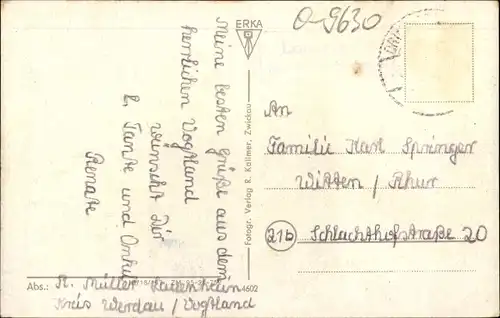 O-9630
ERKA
Meine besten Grüße aus dem
herrlichen Vogtland
wünscht Dir
l. Tante und Onkel
Renate
Fotogr. Verlag R. Kallmer, Zwickau
An
Familie Karl Springer
Witten / Ruhr
21b
Schlachthofstraße 20
Abs.: R. Müller
Kreis Werdau / Vogtland
4602